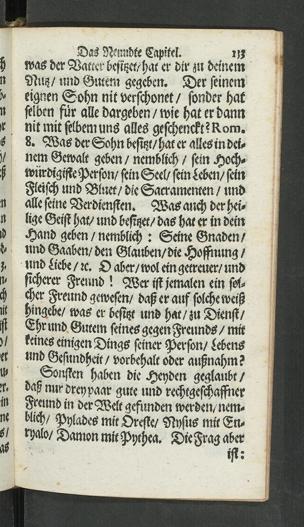 Das Neundte Capitel. 133
was der Vatter besitzet / hat er dir zu deinem
Nutz / und Gutem gegeben. Der seinem
eignen Sohn nit verschonet / sonder hat
selben für alle dargeben / wie hat er dann
nit mit selbem uns alles geschenckt? Rom.
8. Was der Sohn besitzt / hat er alles in dei-
nem Gewalt geben / nemblich / sein Hoch-
würdigiste Person / sein Seel / sein Leben / sein
Fleisch und Bluet / die Sacramenten / und
alle seine Verdiensten. Was auch der hei-
lige Geist hat / und besitzet / das hat er in dein
Hand geben / nemblich : Seine Gnaden /
und Gaaben / den Glauben / die Hoffnung /
und Liebe / ꝛc. O aber / wol ein getreuer / und
sicherer Freund ! Wer ist jemalen ein sol-
cher Freund gewesen / daß er auf solche weiß
hingebe / was er besitzt und hat / zu Dienst /
Ehr und Gutem seines gegen Freunds / mit
keines einigen Dings seiner Person / Lebens
und Gesundheit / vorbehalt oder außnahm?
Sonsten haben die Heyden geglaubt /
daß nur drey paar gute und rechtgeschaffner
Freund in der Welt gefunden werden / nem-
blich / Pylades mit Oreste / Nysus mit Eu-
ryalo / Damon mit Pythea. Die Frag aber
ist: